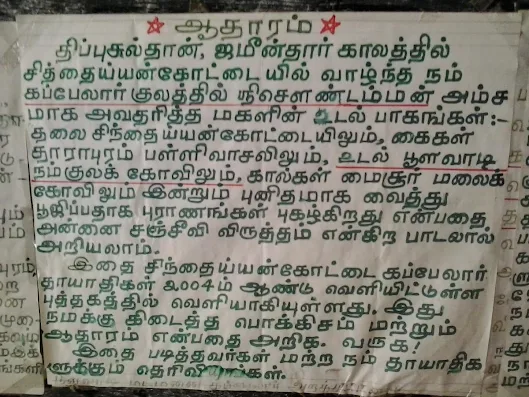 ஆதாரம்
திப்புசுல்தான், ஜமீன்தார் காலத்தில்
சித்தைய்யன்கோட்டையில் வாழ்ந்த நம்
கப்பேலார் குலத்தில் ஸ்ரீசௌண்டம்மன் அம்ச
மாக அவதரித்த மகளின் உடல் பாகங்கள்:-
தலை சிந்தைய்யன்கோட்டையிலும், கைகள்
தாராபுரம் பள்ளிவாசலிலும், உடல் பூளவாடி
நம்குலக் கோவிலும், கால்கள் மைசூர் மலைக்
கோவிலும் இன்றும் புனிதமாக வைத்து
பூஜிப்பதாக புராணங்கள் புகழ்கிறது என்பதை
அன்னை சஞ்சீவி விருத்தம் என்கிற பாடலால்
அறியலாம்.
இதை சிந்தைய்யன்கோட்டை கப்பேலார்
தாயாதிகள் 2004ம் ஆண்டு வெளியிட்டுள்ள
புத்தகத்தில் வெளியாகியுள்ளது. இது
நமக்கு கிடைத்த பொக்கிசம் மற்றும்
ஆதாரம் என்பதை அறிக. வருக!
இதை படித்தவர்கள் மற்ற நம் தாயாதிக
ளுக்கும் தெரிவியுங்கள்.